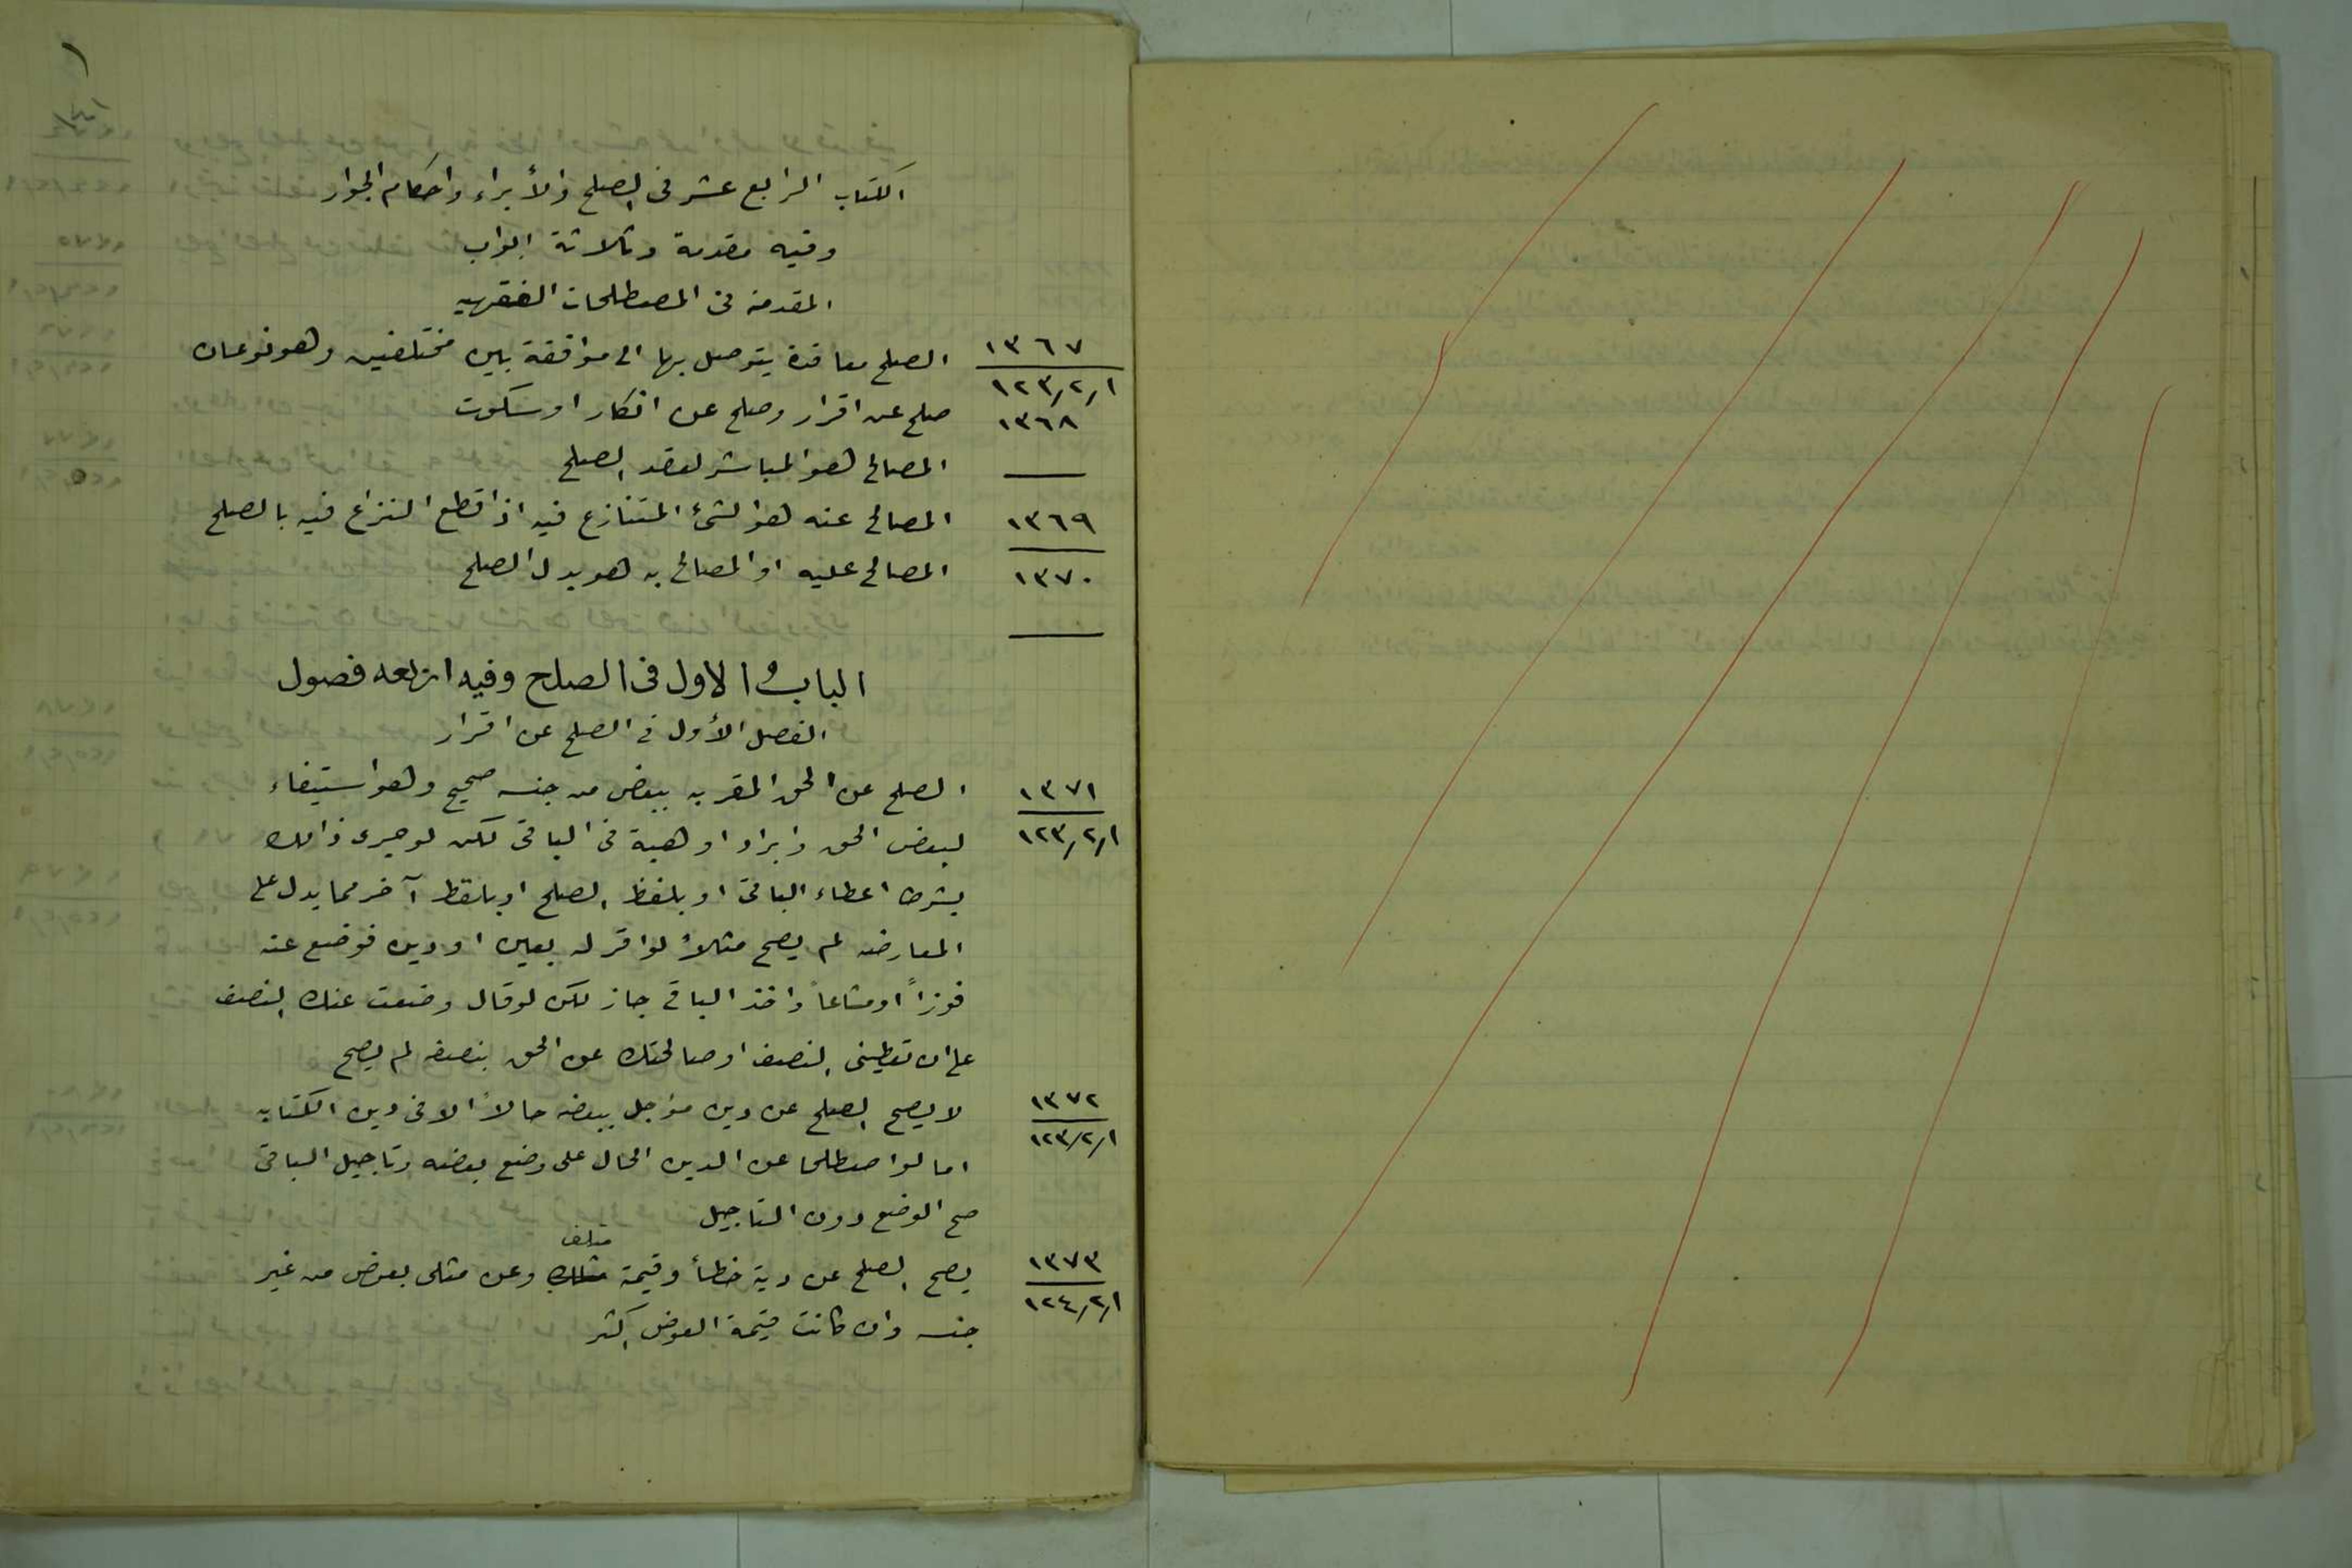 ١
الكتاب الرابع عشر فى الصلح والأبراء واحكام الجوار
وفيه مقدمة وثلاثة ابواب
المقدمة فى المصطلحات الفقهيه
١٣٦٧ الصلح معاقدة يتوصل بها الى موافقة بين مختلفين وهو نوعان
١٢٣/٢/١
صلح عن اقرار وصلح عن انكار او سكوت
١٣٦٨ المصالح هو المباشر لعقد الصلح
١٣٦٩ المصالح عنه هو الشئ المتنازع فيه اذا قطع النزاع فيه بالصلح
١٣٧٠ المصالح عليه او المصالح به هو بدل الصلح
الباب الاول فى الصلح وفيه اربعه فصول
الفصل الأول فى الصلح عن اقرار
١٣٧١ الصلح عن الحق المقر به ببعض من جنسه صحيح وهو استيفاء
١٢٣/٢/١ لبعض الحق وابراء او هبة فى الباقى لكن لو جرى ذالك
بشرط اعطاء الباقى او بلفظ الصلح او بلفظ آخر مما يدل على
المعارضه لم يصح مثلاً لو اقر له بعين او دين فوضع عنه
فوزاً او مشاعاً واخذ الباقى جاز لكن لو قال وضعت عنك النصف
على ان تعطينى النصف او صالحتك عن الحق بنصفه لم يصح
١٣٧٢ لا يصح الصلح عن دين مؤجل ببعضه حالاً الا فى دين الكتابه
١٢٣/٢/١ اما لو اصطلحا عن الدين الحال على وضع بعضه وتاجيل الباقى
صح الوضع دون التاجيل
١٣٧٣ يصح الصلح عن دية خطأ وقيمة متلف وعن مثلى بعوض من غير
١٢٤/٢/١ جنسه وان كانت قيمة العوض اكثر